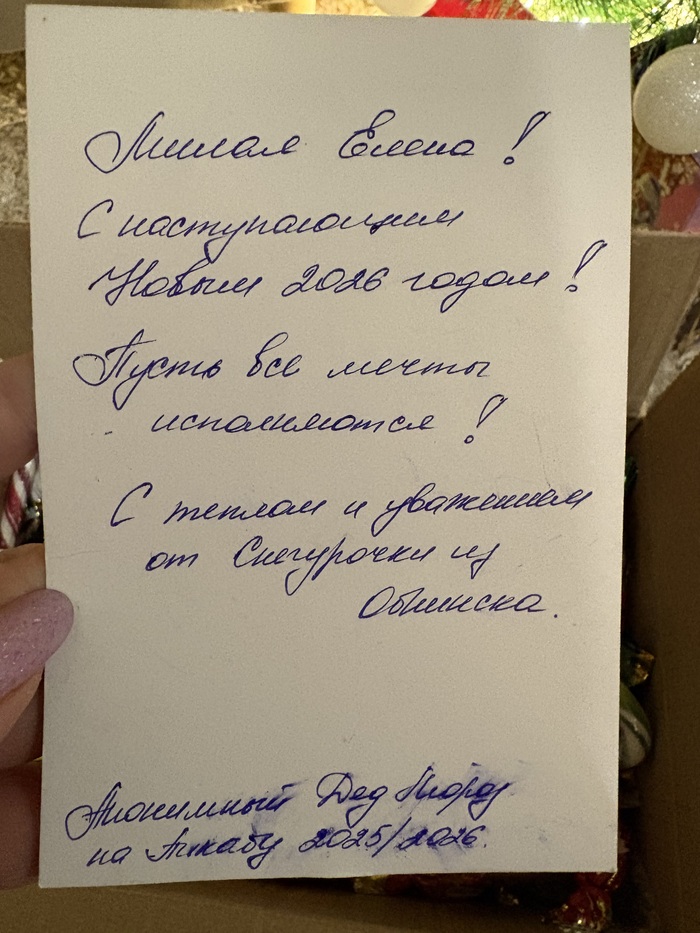 Милая Елена!
С наступающим
Новым 2026 годом!
Пусть все мечты
исполняются!
С теплом и уважением
от Снегурочки из
Обнинска.
Анонимный Дед Мороз
на Пикабу 2025/2026.